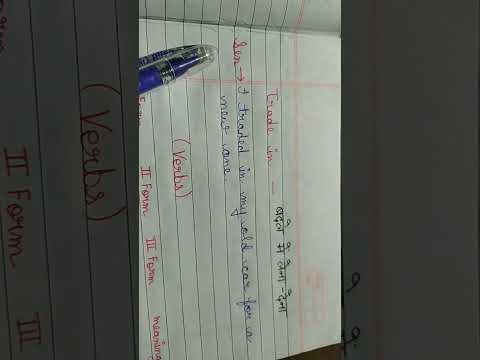 Trade in — बदले में लेना-देना
Sen → I traded in my old car for a
new one.
(Verbs)
Form II Form III Form meaning